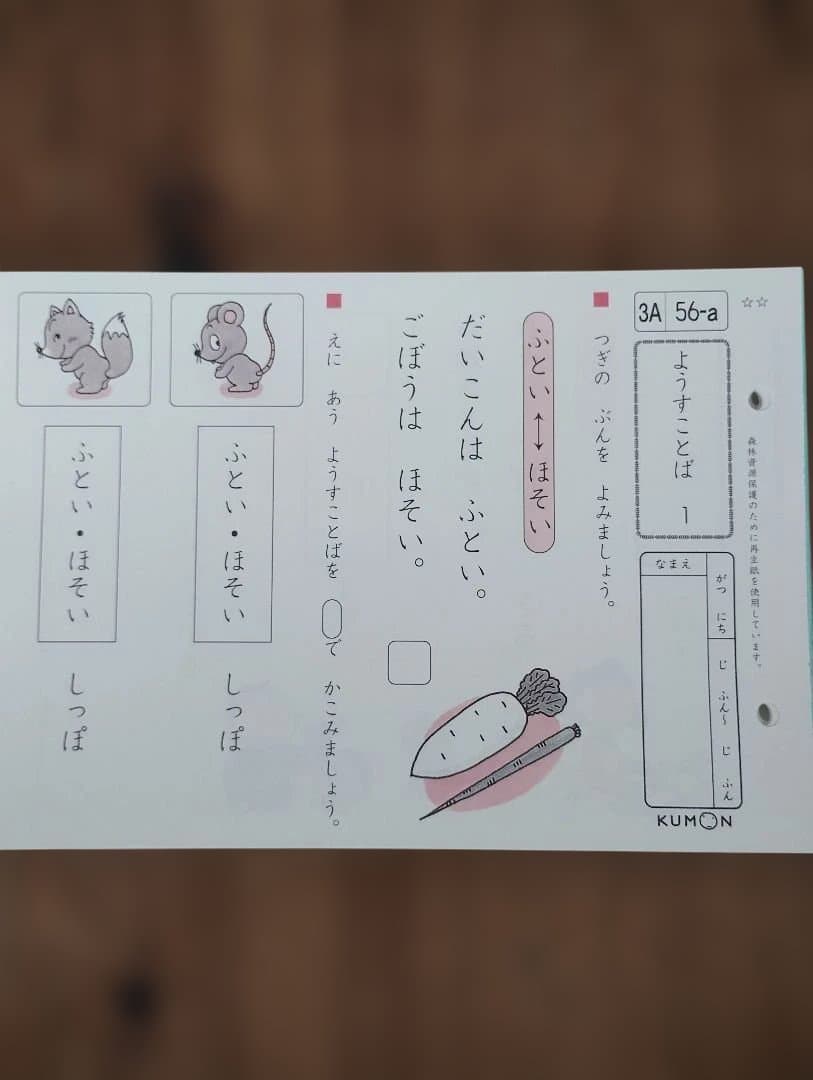 ☆☆
森林資源保護のために再生紙を使用しています。
3A 56-a
ようすことば 1
がつ にち
じ ふん〜 じ ふん
なまえ
KUMON
つぎの ぶんを よみましょう。
ふとい ↔ ほそい
だいこんは ふとい。
ごぼうは ほそい。
えに あう ようすことばを で かこみましょう。
ふとい・ほそい しっぽ
ふとい・ほそい しっぽ